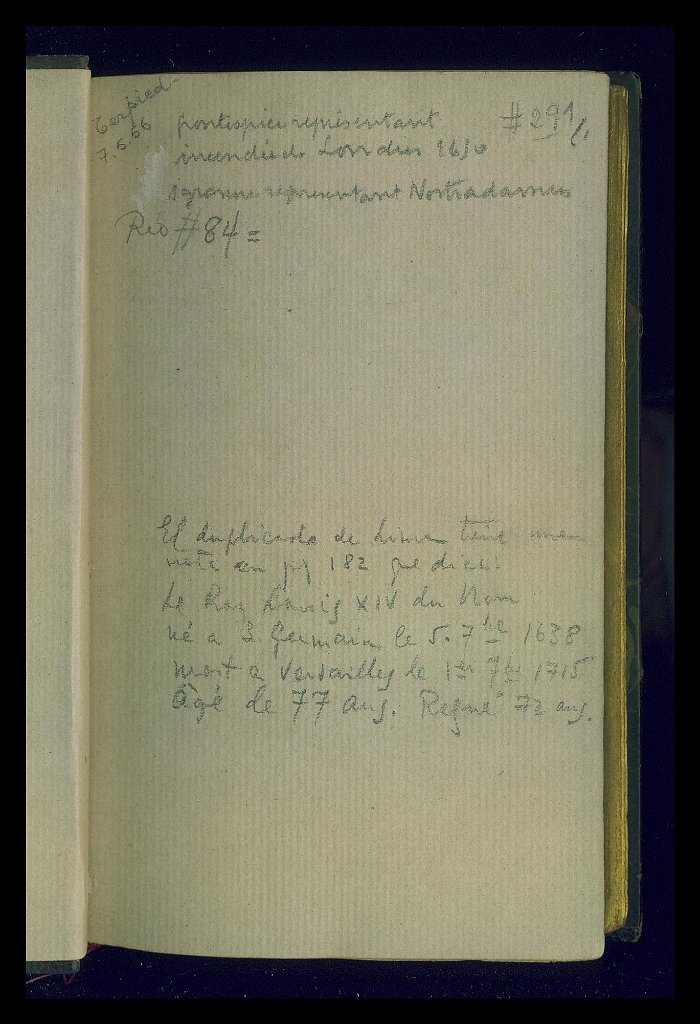 Torpied.
7.6.66
frontispice représentant
#291/.
incendie de Londres
représentant Nostradamus
Rio #84=
El duplicado de Lima tiene una
nota en pg 182 que dice:
Le Roy Louis XIV du Nom
né a S. Germain le 5. 7bre 1638
mort a Versailles le 1er 7bre 1715
âgé de 77 ans. Regné 72 ans.